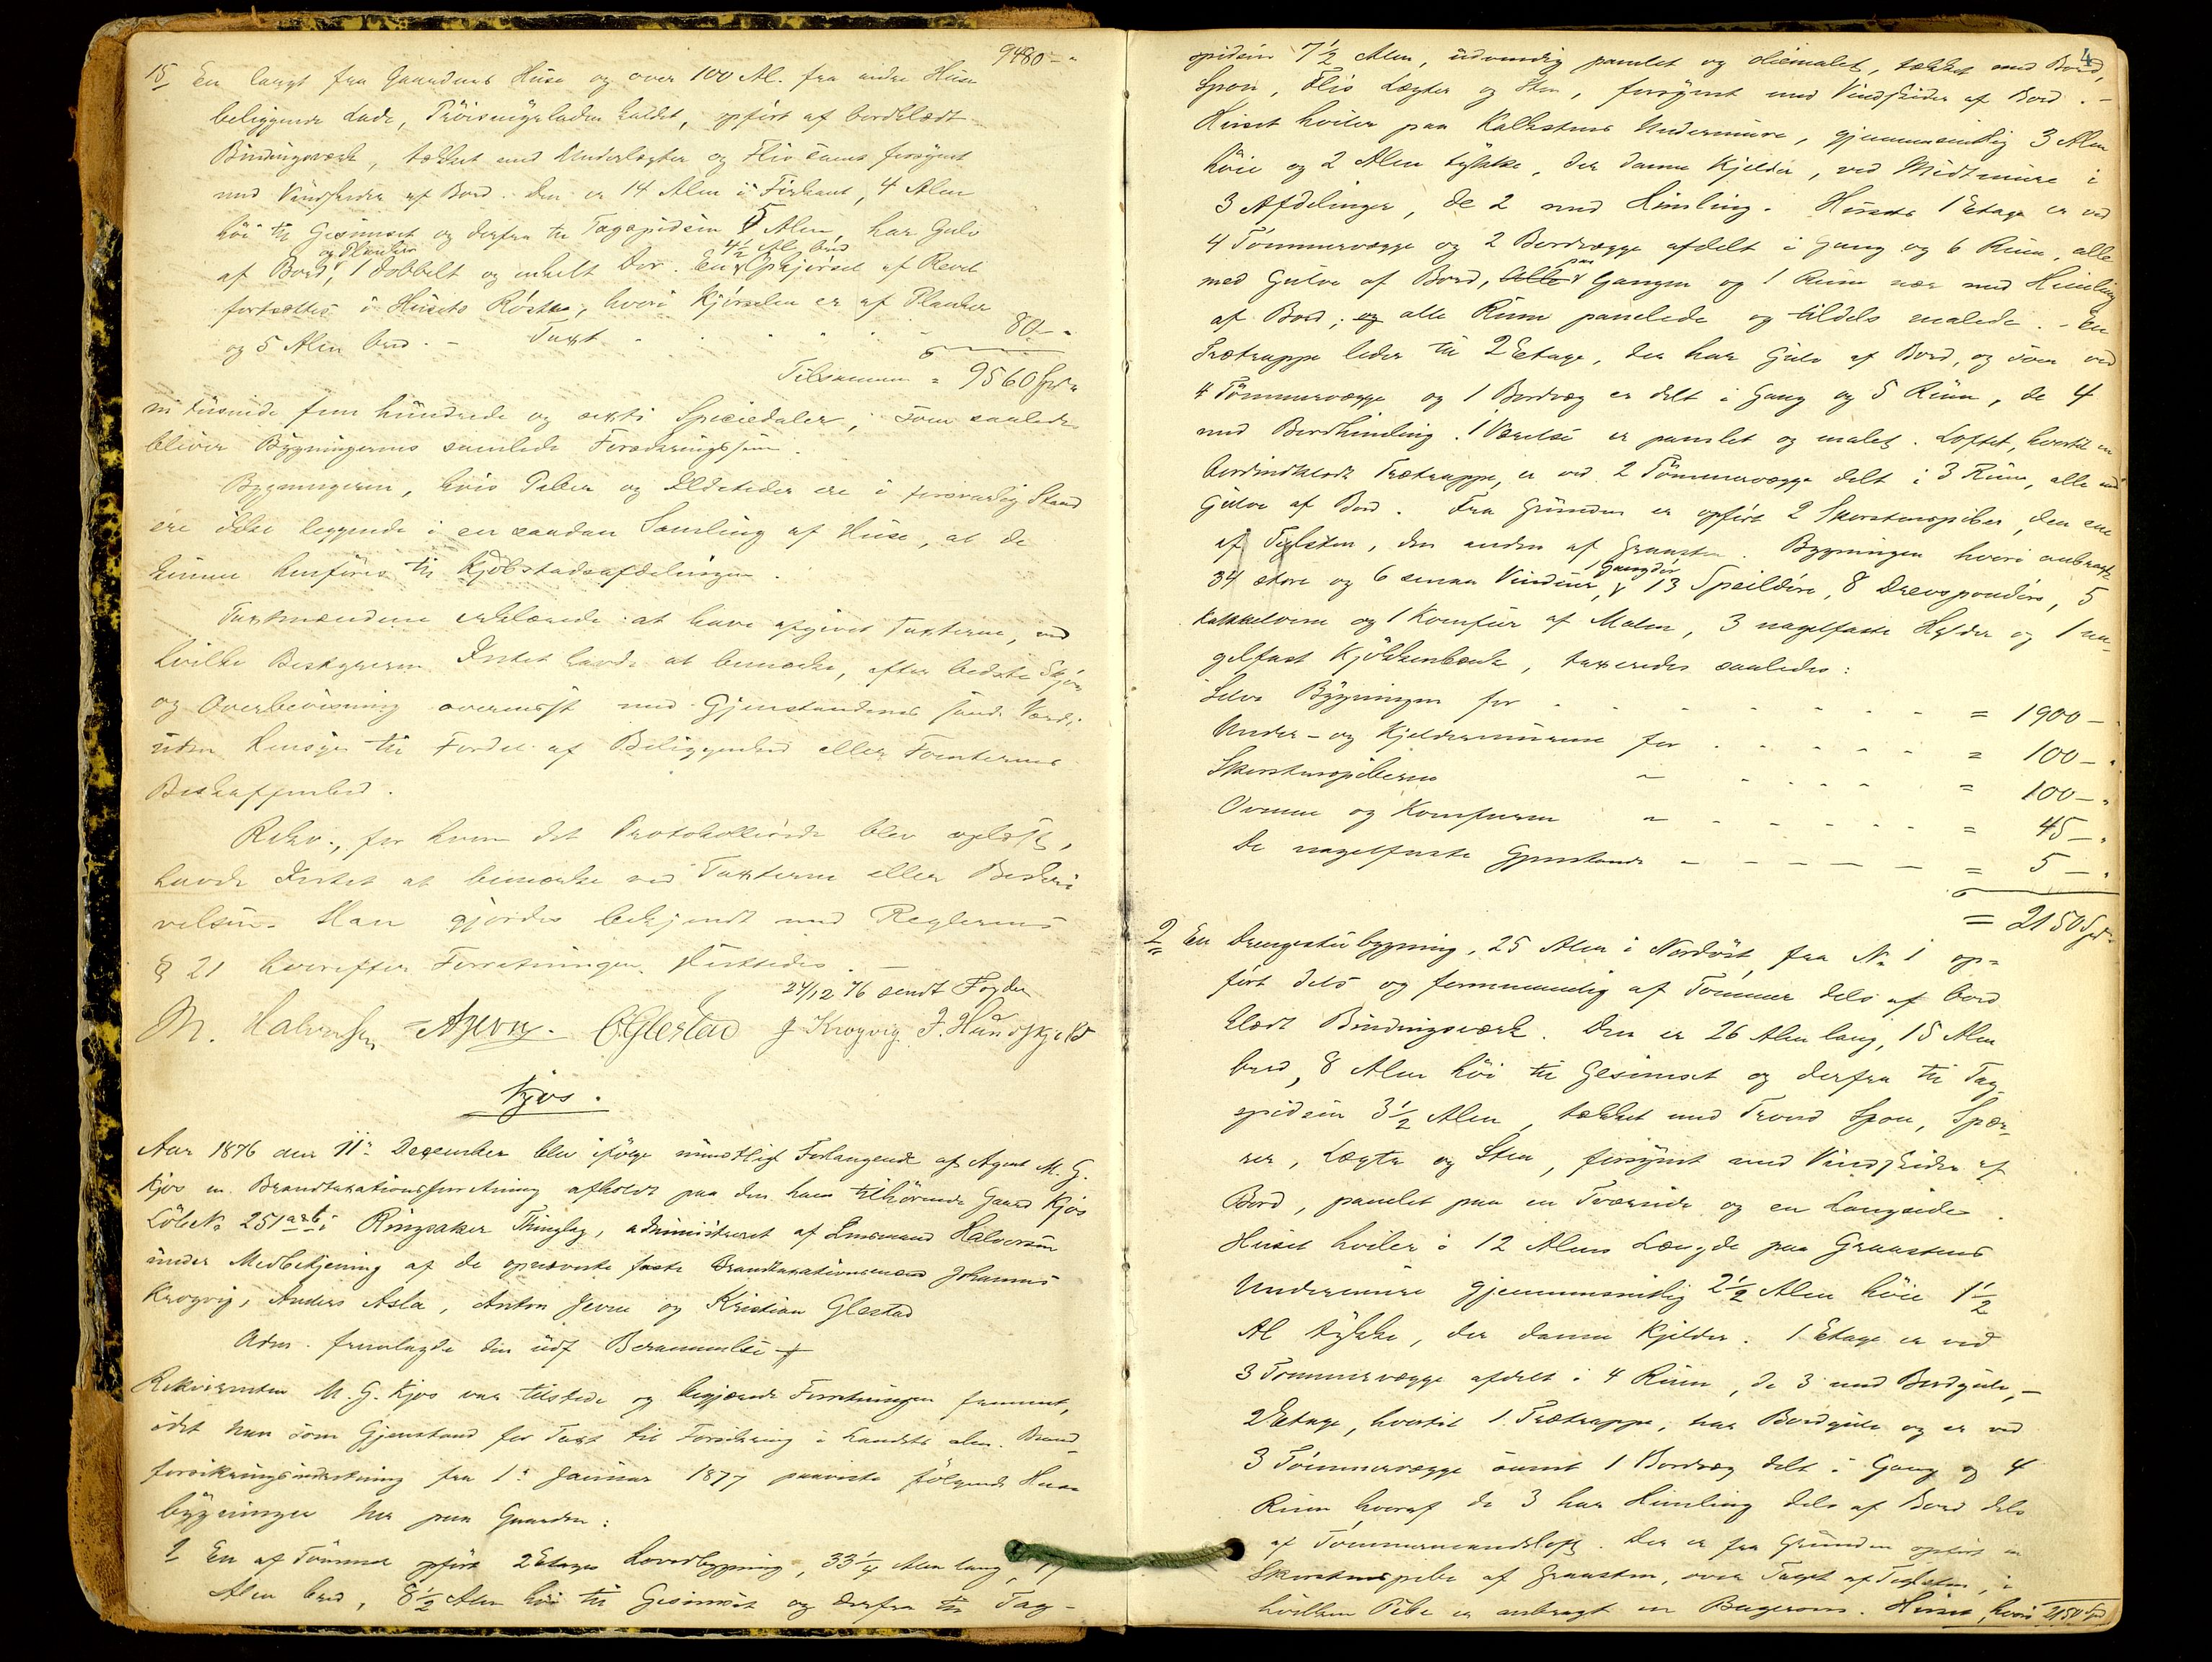 9480 - "
15 En langt fra Gaardens Huse og over 100 Al. fra andre Huse
beliggende Lade, kaldet, opført af bordklædt
Bindingsværk, tækket med Underlægter og Flis samt forsynt
med Vindskeder af Bord. Den er 14 Alen i Firkant, 4 Alen
høi til Gesimset og derfra til Tagspidsen 5 Alen, har Gulv
og Planker 4½ Al. bred
af Bord, 1 dobbelt og enkelt Dør. En Opkjørsel af
fortsættes i Husets Røste, hvori Kjørselen er af Planker
og 5 Alen bred. - Taxt - - - 80 - "
Tilsammen = 9560 Spd "
ni tusinde fem hundrede og sexti Speciedaler, som saaledes
bliver Bygningernes samlede Forsikringssum.
Bygningerne, hvis Piber og Ildsteder ere i forsvarlig Stand
ere ikke liggende i en saadan Samling af Huse, at de
kunne henføres til Kjøbstadsafdelingen.
Taxtmændene erklærede at have afgivet Taxterne, ved
hvilke Bestyreren Intet havde at bemærke, efter bedste Skjøn
og Overbevisning overensst. med Gjenstandenes sande Værdi
uden Hensyn til Fordel af Beliggenhed eller Tomternes
Beskaffenhed.
Rekv., for hvem det Protokollerede blev oplæst,
havde Intet at bemærke ved Taxterne eller Beskri-
velsen. Han gjordes bekjendt med Reglernes
§ 21 hvorefter Forretningen sluttedes. -
24/12 76 sendt Fogden
M. Halvorsen A Jevne. C Glestad J Krogvig J. Hundskjold
Kjos.
Aar 1876 den 11te December blev ifølge mundtligt Forlangende af Agent M. G.
Kjos en Brandtaxationsforretning afholdt paa den ham tilhørende Gaard Kjos
Løbe No 251 i Ringsaker Thinglag, administreret af Lensmand Halvorsen
under Medbetjening af de opnævnte faste Brandtaxationsmænd Johannes
Krogvig, Anders Asla, Anton Jevne og Kristian Glestad
Adm. fremlagde den udf. Berammelse
Rekvirenten M. G. Kjos var tilstede og begjærede Forretningen fremmet,
idet han som Gjenstand for Taxt til Forsikring i Landets alm. Brand-
forsikringsindretning fra 1te Januar 1877 paaviste følgende Huse
bygninger her paa Gaarden:
1 En af Tømmer opført 2 Etages Hovedbygning, 33¼ Alen lang,
Alen bred, 8½ Alen høi til Gesimset og derfra til Tag-
4
spidsen 7½ Alen, udvendig panelet og oliemalet, tækket med Bord,
Spon, Flis Lægter og Sten, forsynt med Vindskeder af Bord. -
Huset hviler paa Kalkstens Undermure, gjennemsnitlig 3 Alen
høie og 2 Alen tykke, der danne Kjelder, ved Midtmure i
3 Afdelinger, de 2 med Himling. Husets 1 Etage er ved
4 Tømmervægge og 2 Bordvægge afdelt i Gang og 6 Rum, alle
med Gulve af Bord, Gangen og 1 Rum nær med Himling
af Bord; og alle Rum panelede og tildels malede. - En
Trætrappe leder til 2 Etage, der har Gulv af Bord, og som ved
4 Tømmervægge og 1 Bordvæg er delt i Gang og 5 Rum, de 4
med Bordhimling. 1 Værelse er panelet og malet. Loftet, hvortil en
bordindklædt Trætrappe, er ved 2 Tømmervægge delt i 3 Rum, alle med
Gulve af Bord. Fra Grunden er opført 2 Skorstenspiber, den ene
af Teglsten, den anden af Graasten. Bygningen hvori anbragt
1 Gangdør
34 store og 6 smaa Vinduer, 13 Speildøre, 8 Drevspondøre, 5
Kakkelovne og 1 Komfur af Malm, 3 nagelfaste Hylder og 1 na-
gelfast Kjøkkenbænk, taxeredes saaledes:
Selve Bygningen for - - - = 1900 - "
Under- og Kjeldermurene for - - - = 100 - "
Skorstenspiberne " - - - = 100 - "
Ovnene og Komfuren " - - - = 45 - "
De nagelfaste Gjenstande - - - = 5 - "
= 2150 Spd "
2 En Drengestubygning, 25 Alen i Nordvest fra No 1 op-
ført dels og fornemmelig af Tømmer dels af bord
klædt Bindingsværk. Den er 26 Alen lang, 15 Alen
bred, 8 Alen høi til Gesimset og derfra til Tag-
spidsen 3½ Alen, tækket med Troed Spon, Spær-
rer, Lægter og Sten, forsynt med Vindskeder af
Bord, panelet paa en Tværside og en Langside.
Huset hviler i 12 Alens Længde paa Graastens
Undermure gjennemsnitlig 2½ Alen høie 1½
Al tykke, der danne Kjelder. 1 Etage er ved
3 Tømmervægge afdelt i 4 Rum, de 3 med Bordgulv, -
2 Etage, hvortil 1 Trætrappe, har Bordgulv og er ved
3 Tømmervægge samt 1 Bordvæg delt i Gang og 4
Rum hvoraf de 3 har Himling dels af Bord dels
af Tømmermandsloft. Der er fra Grunden opført en
Skorstenspibe af Graasten, over Taget af Teglsten, i
hvilken Pibe er anbragt en Bagerovn. Huset, hvori 2150 Spd